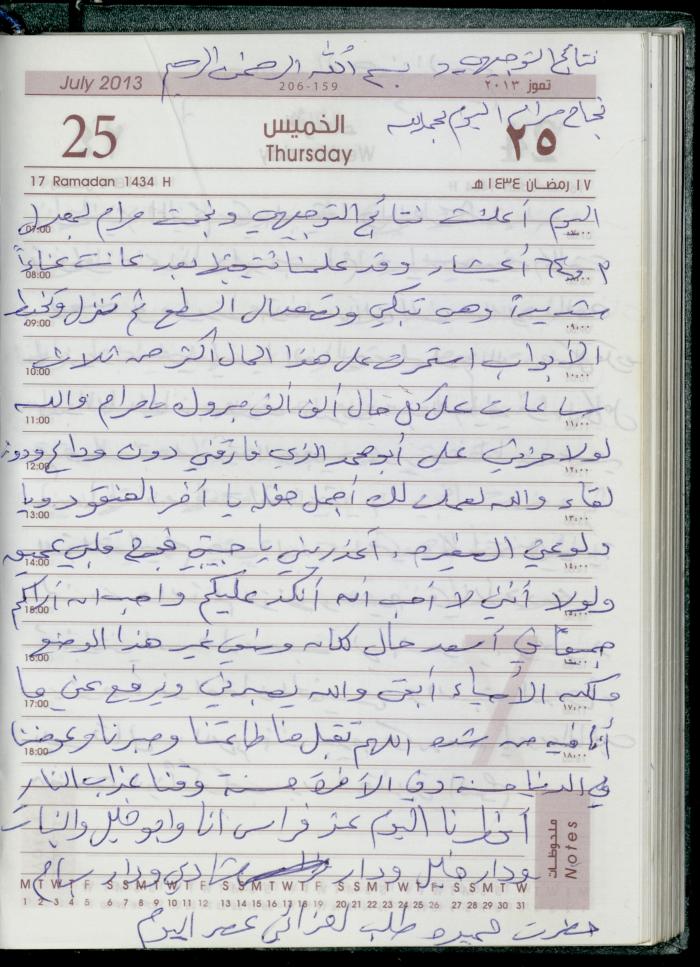 نتائج التوجيهي و بسم الله الرحمن الرحيم
July 2013 206-159 تموز ٢٠١٣
نجاح مرام اليوم بحمد الله
25 الخميس ٢٥
Thursday
17 Ramadan 1434 H ١٧ رمضان ١٤٣٤هـ
اليوم أعلنت نتائج التوجيهي ونجحت مرام بمعدل
07:00 ٠٧:٠٠
أعشار وقد علمنا نتيجتها بعد عانت عناءاً
08:00 ٠٨:٠٠
شديداً وهي تبكي وتصعد إلى السطح ثم تنزل وتخبط
09:00 ٠٩:٠٠
الأبواب استمرت على هذا الحال أكثر من ثلاث
10:00 ١٠:٠٠
ساعات على كل حال ألف ألف مبروك يا مرام والله
11:00 ١١:٠٠
لولا حزني على أبو محمد الذي فارقني دون وداع ودون
12:00 ١٢:٠٠
لقاء والله لعملت لك أجمل حفلة يا آخر العنقود ويا
13:00 ١٣:٠٠
دلوعتي الصغيرة، أعذريني يا حبيبتي فجرح قلبي عميق
14:00 ١٤:٠٠
ولولا أنني لا أحب أن أنكد عليكم وأحب أن أراكم
15:00 ١٥:٠٠
جميعاً في أسعد حال لكان وضعي غير هذا الوضع
16:00 ١٦:٠٠
ولكن الأحياء أبقى والله يصبرني ويرفع عني ما
17:00 ١٧:٠٠
أنا فيه من شدة اللهم تقبل منا طاعتنا وصبرنا وعوضنا
18:00 ١٨:٠٠
في الدنيا حسنة وفي الآخرة حسنة وقنا عذاب النار
أفطرنا اليوم عند فراس أنا وأبو خليل والبنات
ملحوظات Notes
ودار خليل ودار شادي ودار سامر
M T W T F S S M T W T F S S M T W T F S S M T W T F S S M T W
1 2 3 4 5 6 7 8 9 10 11 12 13 14 15 16 17 18 19 20 21 22 23 24 25 26 27 28 29 30 31
حضرت حميدة طلب لعزائي عصر اليوم